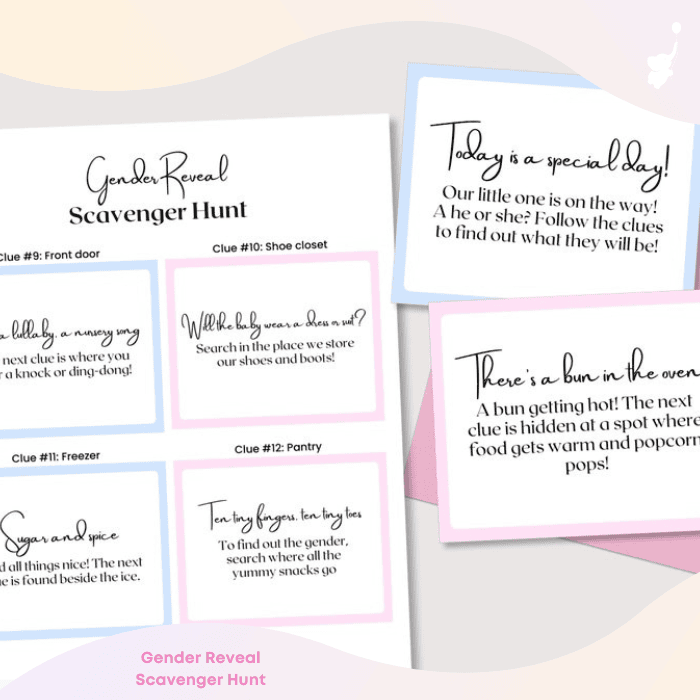 Gender Reveal
Scavenger Hunt
Clue #9: Front door
a lullaby, a nursery song
next clue is where you
a knock or ding-dong!
Clue #10: Shoe closet
Will the baby wear a dress or suit?
Search in the place we store
our shoes and boots!
Clue #11: Freezer
Sugar and spice
all things nice! The next
is found beside the ice.
Clue #12: Pantry
Ten tiny fingers, ten tiny toes
To find out the gender,
search where all the
yummy snacks go
Today is a special day!
Our little one is on the way!
A he or she? Follow the clues
to find out what they will be!
There's a bun in the oven
A bun getting hot! The next
clue is hidden at a spot where
food gets warm and popcorn
pops!
Gender Reveal
Scavenger Hunt